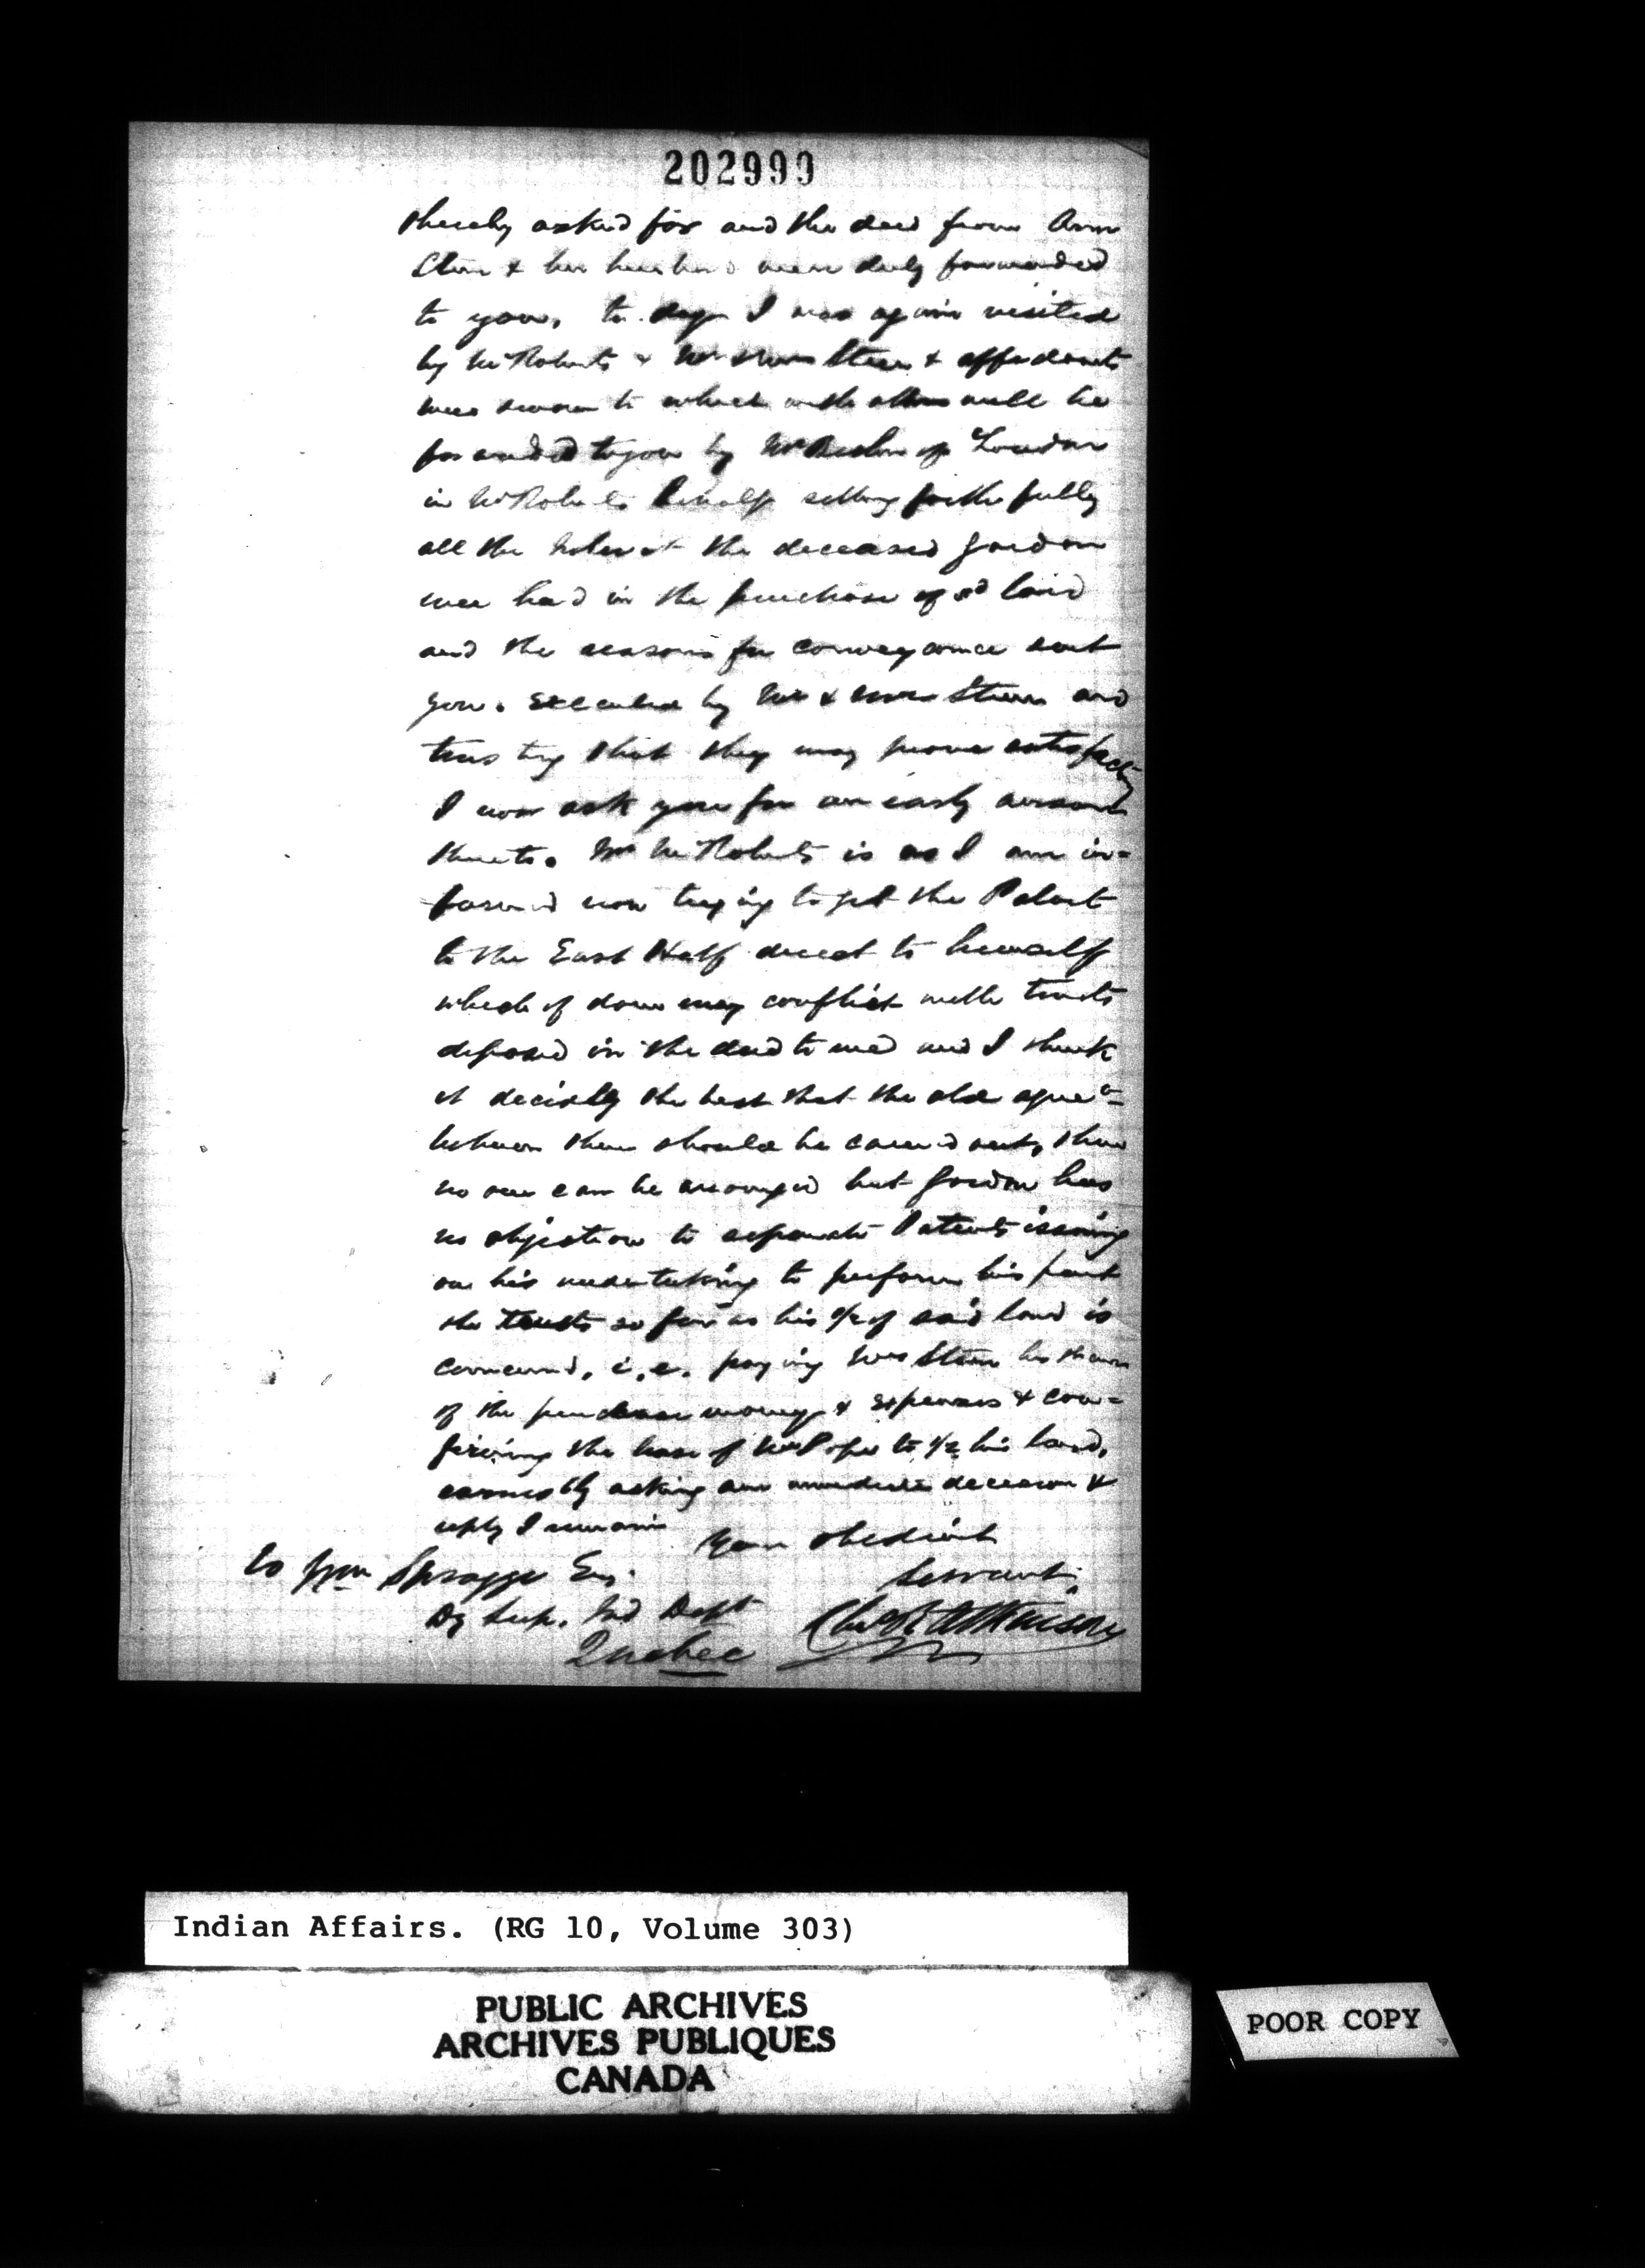 202999
thereby asked for and the deed from Ann
Stern & her husband were duly forwarded
to you, to day I was again visited
by McRoberts & Mr & Mrs Stern & affidavits
were sworn to which with others will be
forwarded to you by Mr of London
in McRoberts behalf setting forth fully
all the interest the deceased Gordon
ever had in the purchase of sd land
and the reasons for conveyance sent
you. Executed by Mr & Mrs Stern and
trusting that they may prove satisfactory
I now ask you for an early answer
thereto. Mr McRoberts is as I am in=
formed now trying to get the Patent
to the East Half direct to himself
which if done may conflict with trusts
in the deed to and I think
it decidly the best that the old
between them should be carried out,
no one can be but Gordon has
no objection to separate Patents issuing
on his undertaking to perform his part
the trusts so far as his 1/2 of said land is
concerned, i.e. paying Mrs Stern his share
of the purchase money & expenses & con=
the lease of to 1/2 his land,
earnestly asking an immediate decision &
reply I remain
Your obedient
Servant.
To Wm Spragge Esq.
Dy Sup. Ind Dept
Quebec
Atkinson
Indian Affairs. (RG 10, Volume 303)
PUBLIC ARCHIVES
ARCHIVES PUBLIQUES
CANADA
POOR COPY